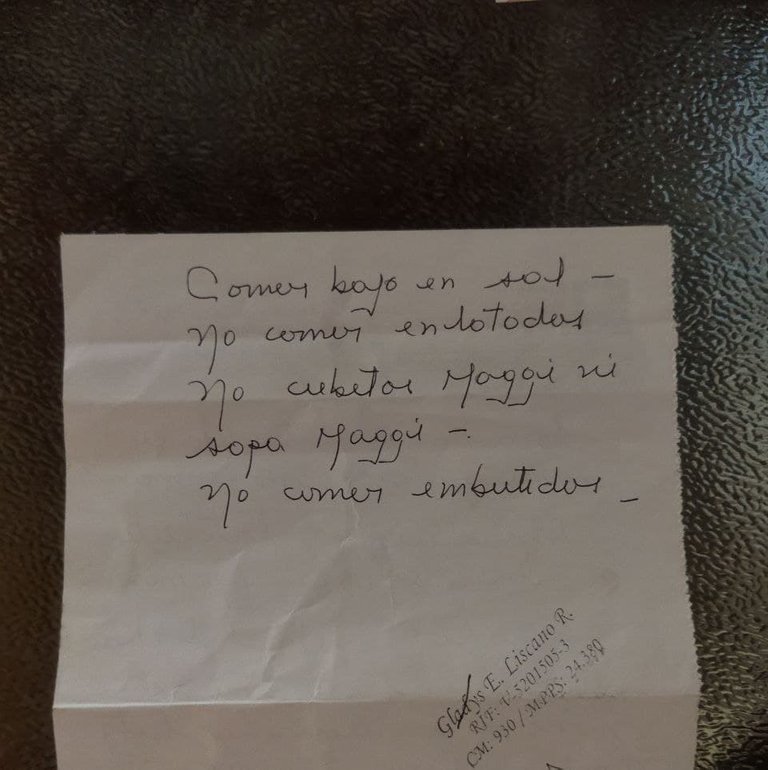 Comer bajo en sal –
No comer enlotodos
No cubitos Maggi ni
sopa Maggi –.
No comer embutidos –
Gladys E. Liscano R.
RIF: V-5201505-3
CM: 930 / MPPS: 24.380